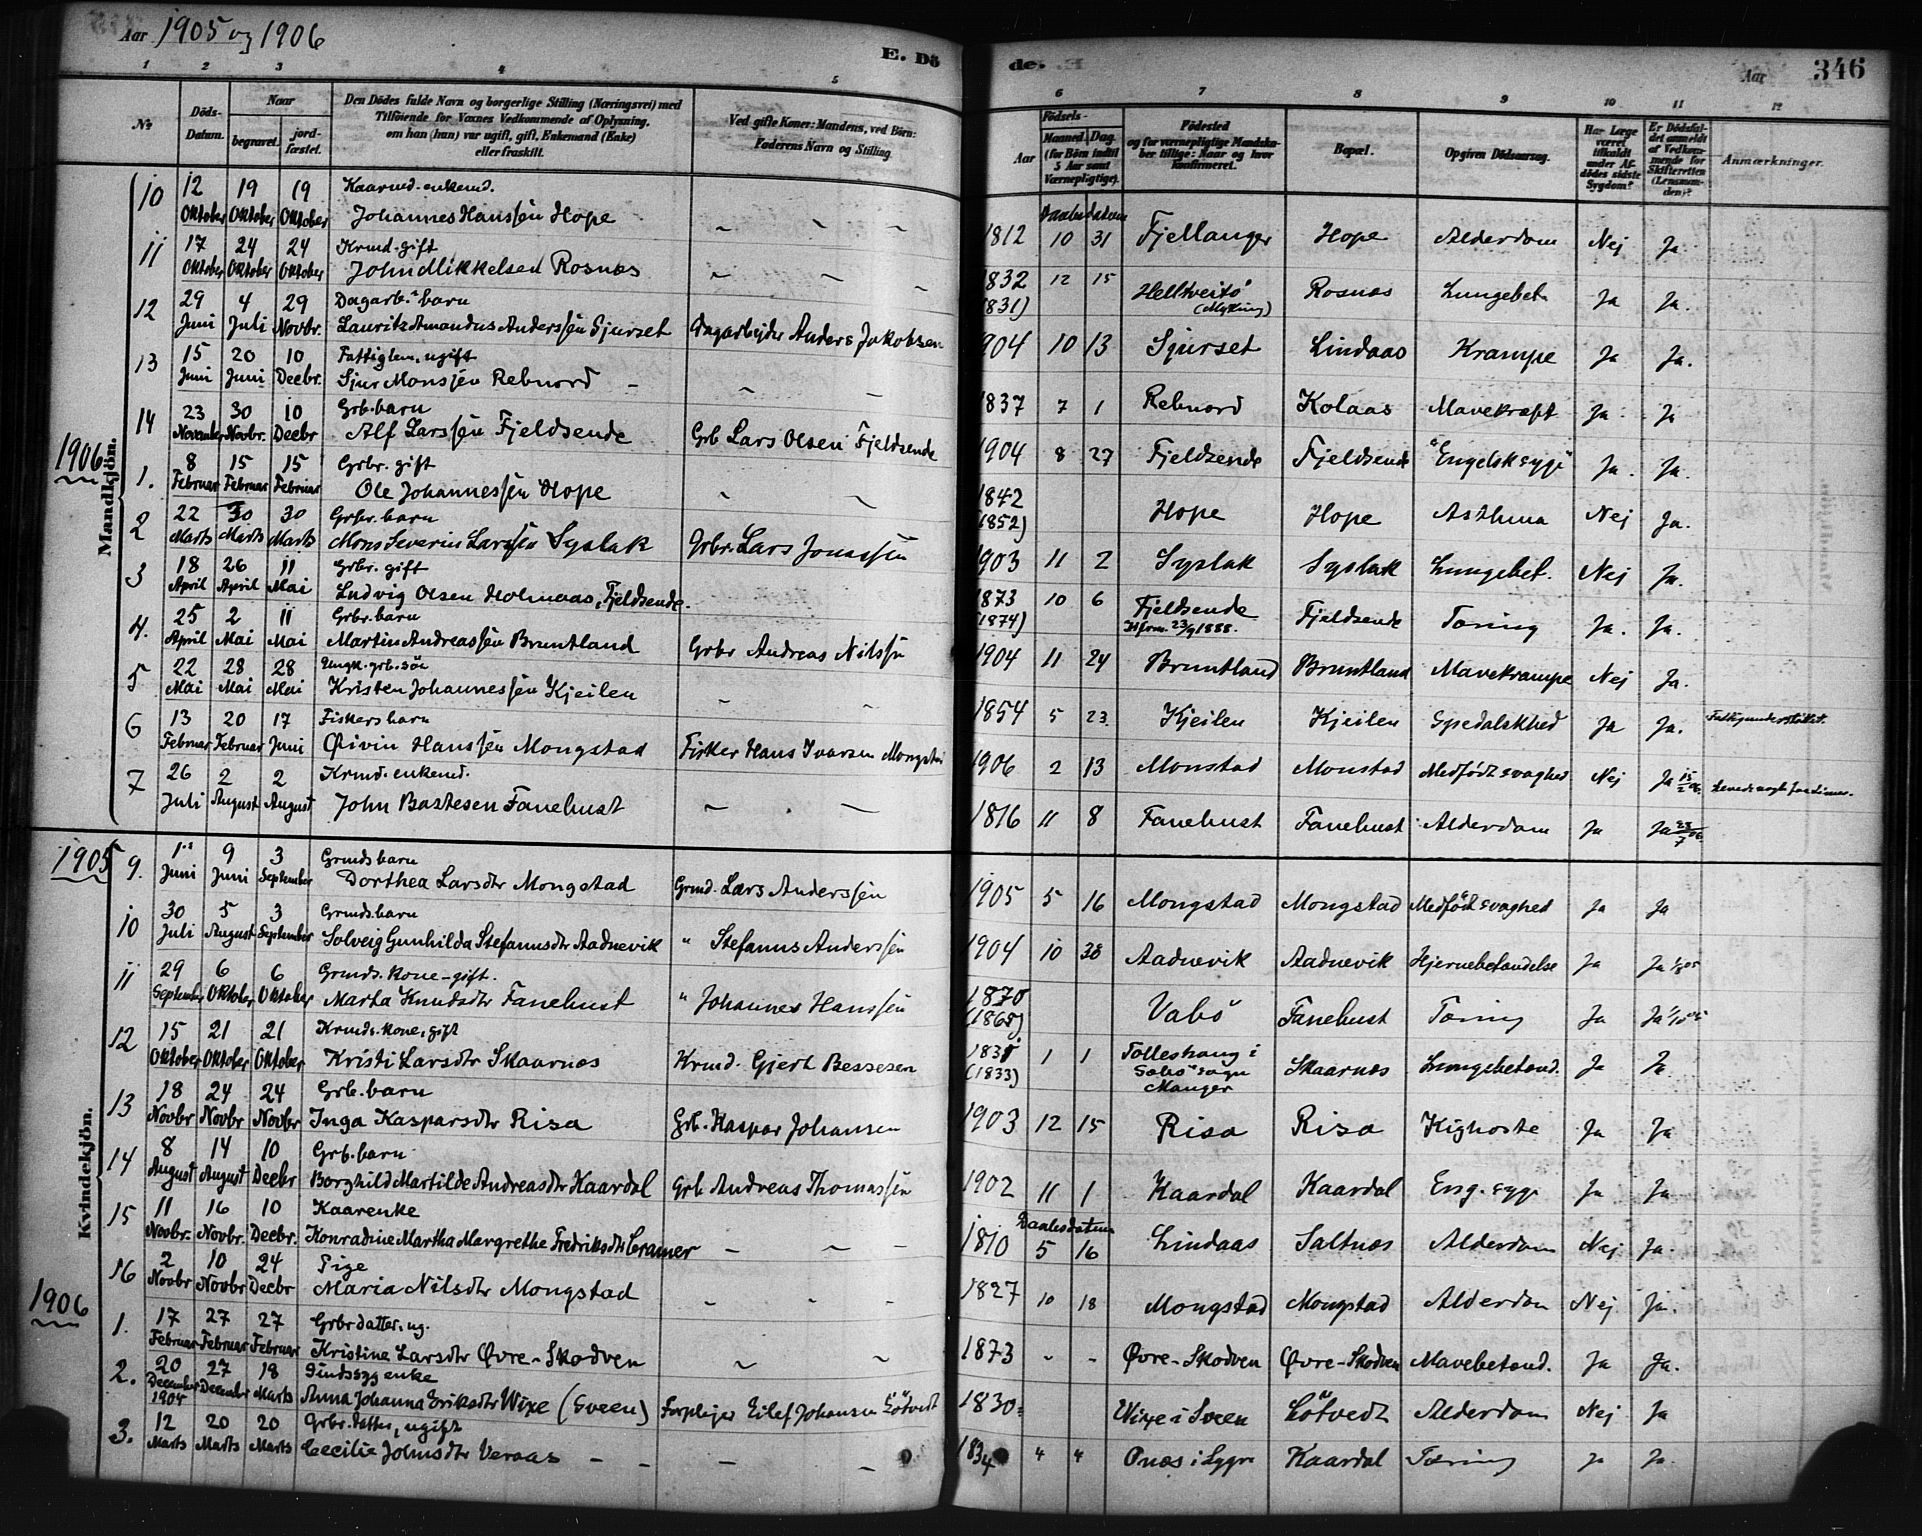 Aar 1905 og 1906
E. Dö
de.
Aar
346
1 2 3 4 5 6 7 8 9 10 11 12
No
Döds-Datum.
Naar
begravet.
jordfæstet.
Den Dödes fulde Navn og borgerlige Stilling (Næringsvei) med
Tilföiende for Voxnes Vedkommende af Oplysning,
om han (hun) var ugift, gift, Enkemand (Enke)
eller fraskilt.
Ved gifte Koner: Mandens, ved Börn:
Faderens Navn og Stilling.
Aar
Födsels-
Maaned. Dag.
(for Börn indtil
5 Aar samt
Værnepligtige).
Födested
og for værnepligtige Mandskaber tillige: Naar og hvor
konfirmeret.
Bopæl.
Opgiven Dödsaarsag.
Har Læge været tilkaldt under Afdödes sidste Sygdom?
Er Dödsfaldet anmeldt af Vedkommende for Skifteretten (Lensmanden)?
Anmærkninger.
Mandkjön.
10 12 Oktober 19 Oktober 19 Oktober Kaarmd. enkemd.
Johannes Hanssen Hope 1812 Daabsdatum 10 31 Fjellanger Hope Alderdom Nej Ja
11 17 Oktober 24 Oktober 24 Oktober Krmd. gift
John Mikkelsen Rosnæs 1832 (1831) 12 15 Helltveitö (Myking) Rosnæs Lungebet. Ja Ja.
12 29 Juni 4 Juli 29 Novbr. Dagarb. barn
Lauritz Amandus Anderssen Sjurset Dagarbejder Anders Jakobsen 1904 10 13 Sjurset Lindaas Krampe Ja Ja.
13 15 Juni 20 Juni 10 Decbr. Fattiglem, ugift
Sjur Monssen Rebnord 1837 7 1 Rebnord Kolaas Mavekræft Ja. Ja
14 23 November 30 Novbr. 10 Decbr Grb. barn
Alf Larssen Fjeldsende Grb Lars Olsen Fjeldsende 1904 8 27 Fjeldsende Fjeldsende "Engelsk syge" Ja. Ja.
1906
1. 8 Februar 15 Februar 15 Februar Grbr. gift
Ole Johannessen Hope 1842 (1852) Hope Hope Asthma Nej Ja.
2 22 Marts 30 Marts 30 Marts Grbr. barn
Mons Severin Larssen Syslak Grbr. Lars Jonassen 1903 11 2 Syslak Syslak Lungebet. Nej Ja.
3 18 April 26 April 11 Mai Grbr. gift
Ludvig Olsen Holmaas, Fjeldsende. 1873 (1874) 10 6 Fjeldsende Kfrm. 23/9 1888. Fjeldsende Tæring Ja. Ja.
4. 25 April 2 Mai 11 Mai Grbr. barn
Martin Andreassen Bruntland Grbr Andreas Nilssen 1904 11 24 Bruntland Bruntland Mavekrampe Nej Ja.
5 22 Mai 28 Mai 28 Mai Ungk. grb. sön
Kristen Johannessen Kjeilen 1854 5 23 Kjeilen Kjeilen Spedalskhed Ja Ja. Fattigunderstöttet.
6 13 Februar 20 Februar 17 Juni Fiskers barn
Øivin Hanssen Mongstad Fisker Hans Ivarsen Mongstad 1906 2 13 Monstad Monstad Medfödt svaghed Nej Ja 15/2 06.
7 26 Juli 2 August 2 August Krmd. enkemd.
John Bastesen Fanehust 1816 11 8 Fanehust Fanehust Alderdom Ja Ja 28/7 06.
1905
Kvindekjön.
9. 1 Juni 9 Juni 3 September Grmds barn
Dorthea Larsdtr Mongstad Grmd. Lars Anderssen 1905 5 16 Mongstad Mongstad Medfödt svaghed Ja Ja
10 30 Juli 5 August 3 September Grmds. barn
Solveig Gunhilda Stefanusdtr Aadnevik " Stefanus Anderssen 1904 10 30 Aadnevik Aadnevik Hjernebetændelse Ja Ja
11 29 September 6 Oktober 6 Oktober Grmds. kone - gift.
Marta Knudsdtr Fanehust " Johannes Hanssen 1870 (1868) Vabö Fanehust Tæring Ja Ja
12 15 Oktober 21 Oktober 21 Oktober Krmds. kone, gift
Kristi Larsdtr Skaarnæs Krmd. Gjert Bessesen (1833) 1 1 Tolleshaug i Sæbö sogn Manger Skaarnæs Lungebetænd. Ja Ja
13 18 Novbr 24 Novbr 24 Novbr Grb. barn
Inga Kaspersdtr Risa Grb. Kaspar Johansen 1903 12 15 Risa Risa Kighoste Ja Ja
14 8 August 14 August 10 Decbr Grb. barn
Borghild Martilde Andreasdtr Kaardal Grb Andreas Thomassen 1902 11 1 Kaardal Kaardal Eng. syge Ja Ja
15 11 Novbr. 16 Novbr. 10 Decbr. Kaarenke
Konradine Martha Margrethe Fredriksdtr Cramer 1810 Daabsdatum 5 16 Lindaas Saltnæs Alderdom Nej Ja.
16 2 Novbr 10 Novbr 24 Decbr Pige
Maria Nilsdtr Mongstad 1827 10 18 Mongstad Mongstad Alderdom Nej Ja.
1906
1. 17 Februar 27 Februar 27 Februar Grbr datter, ug.
Kristine Larsdtr Øvre-Skodven 1873 - - Øvre-Skodven Øvre-Skodven Mavebetænd. Ja Ja.
2. 20 December 1905 27 December 18 Marts Sindssyg enke
Anna Johanna Eriksdtr Wixe (Sveen) Forplejer Eilef Johansen Götvedt 1830 Wixe i Sveen Götvedt Alderdom Nej Ja
3. 12 Marts 20 Marts 20 Marts Grbr. datter, ugift
Cecilie Johnsdtr Veraas 1834 " " Onæs i Lygre Kaardal Tæring Ja Ja.